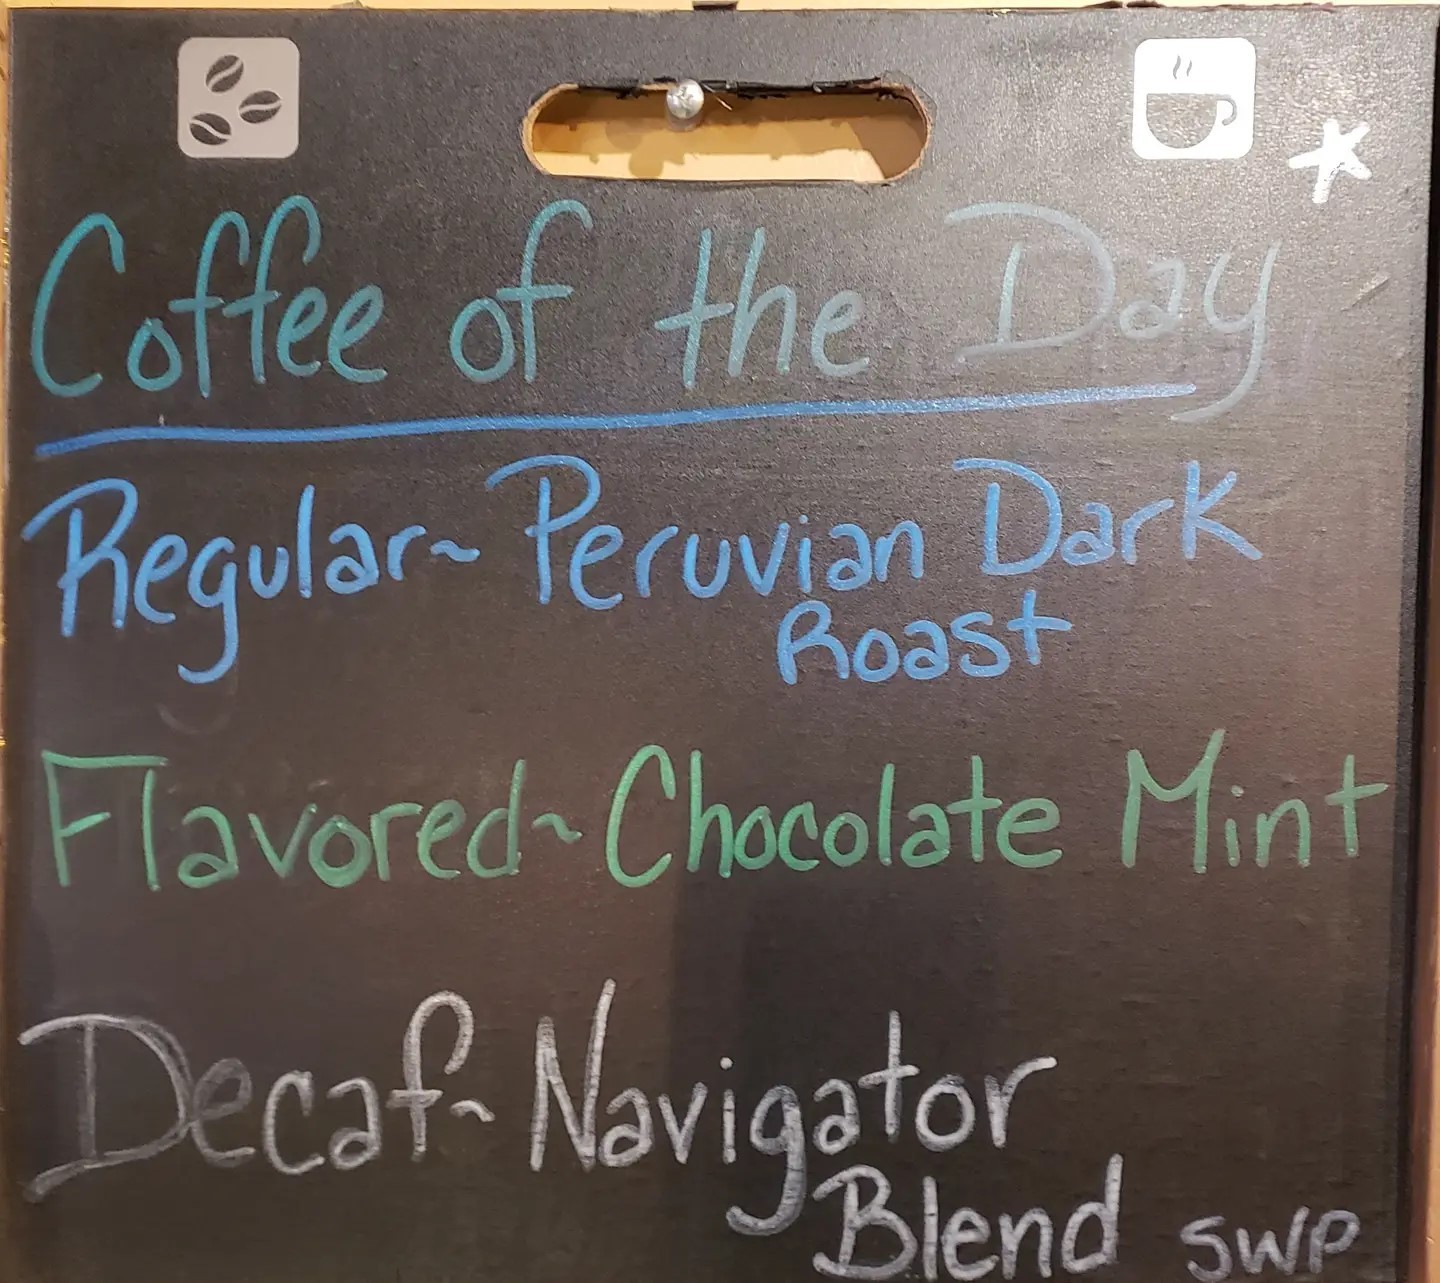 Coffee of the Day
Regular~ Peruvian Dark
Roast
Flavored~ Chocolate Mint
Decaf~ Navigator
Blend SWP